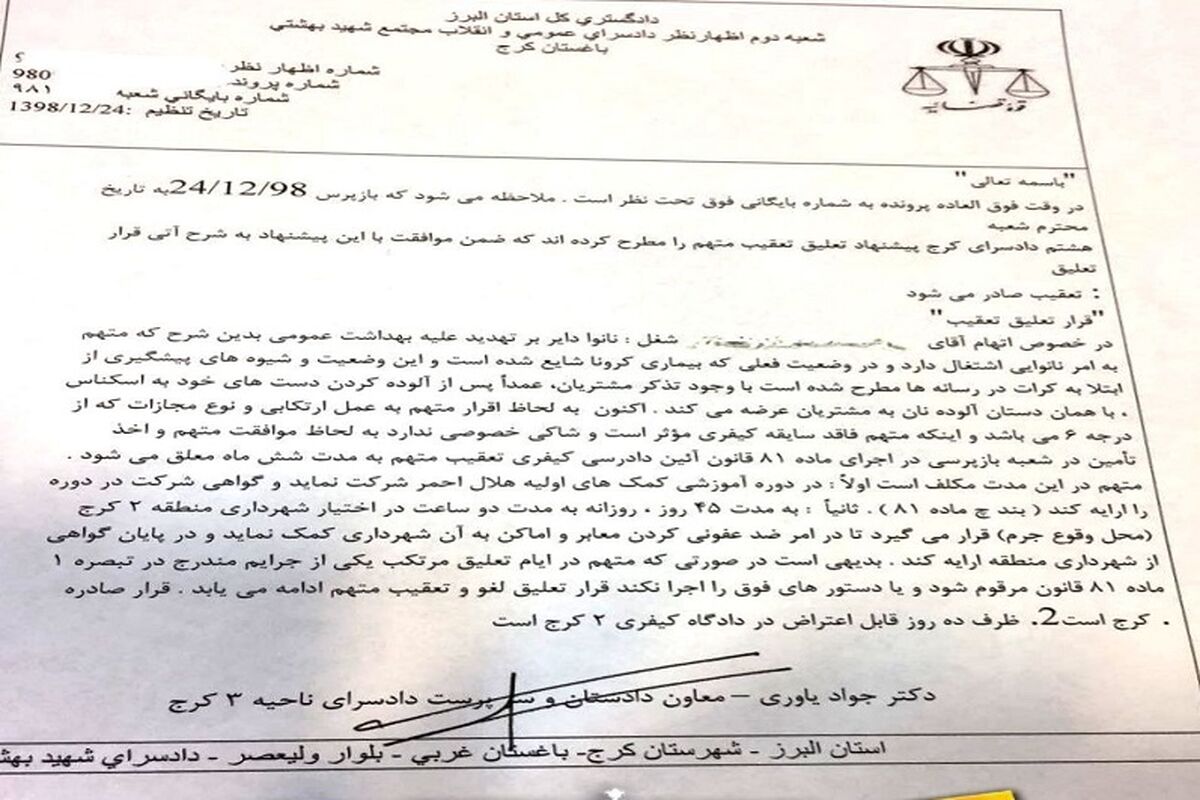 دادگستري كل استان البرز
شعبه دوم اظهارنظر دادسراي عمومي و انقلاب مجتمع شهيد بهشتي
باغستان كرج
شماره اظهار نظر
شماره پرونده 980
شماره بايگاني شعبه ۹۸۱
تاريخ تنظيم :1398/12/24
قوه قضائیه
"باسمه تعالی"
در وقت فوق العاده پرونده به شماره بایگانی فوق تحت نظر است . ملاحظه می شود که بازپرس 24/12/98به تاریخ
محترم شعبه
هشتم دادسرای کرج پیشنهاد تعلیق تعقیب متهم را مطرح کرده اند که ضمن موافقت با این پیشنهاد به شرح آتی قرار
تعلیق
: تعقیب صادر می شود
"قرار تعلیق تعقیب"
در خصوص اتهام آقای شغل : نانوا دایر بر تهدید علیه بهداشت عمومی بدین شرح که متهم
به امر نانوایی اشتغال دارد و در وضعیت فعلی که بیماری کرونا شایع شده است و این وضعیت و شیوه های پیشگیری از
ابتلا به کرات در رسانه ها مطرح شده است با وجود تذکر مشتریان، عمداً پس از آلوده کردن دست های خود به اسکناس
، با همان دستان آلوده نان به مشتریان عرضه می کند . اکنون به لحاظ اقرار متهم به عمل ارتکابی و نوع مجازات که از
درجه ۶ می باشد و اینکه متهم فاقد سابقه کیفری مؤثر است و شاکی خصوصی ندارد به لحاظ موافقت متهم و اخذ
تأمین در شعبه بازپرسی در اجرای ماده ۸۱ قانون آئین دادرسی کیفری تعقیب متهم به مدت شش ماه معلق می شود .
متهم در این مدت مکلف است اولاً : در دوره آموزشی کمک های اولیه هلال احمر شرکت نماید و گواهی شرکت در دوره
را ارایه کند ( بند چ ماده ۸۱ ) . ثانیاً : به مدت ۴۵ روز ، روزانه به مدت دو ساعت در اختیار شهرداری منطقه ۲ کرج
(محل وقوع جرم) قرار می گیرد تا در امر ضد عفونی کردن معابر و اماکن به آن شهرداری کمک نماید و در پایان گواهی
از شهرداری منطقه ارایه کند . بدیهی است در صورتی که متهم در ایام تعلیق مرتکب یکی از جرایم مندرج در تبصره ۱
ماده ۸۱ قانون مرقوم شود و یا دستور های فوق را اجرا نکند قرار تعلیق لغو و تعقیب متهم ادامه می یابد . قرار صادره
. کرج است2. ظرف ده روز قابل اعتراض در دادگاه کیفری ۲ کرج است
دکتر جواد یاوری – معاون دادستان و سرپرست دادسرای ناحیه ۳ کرج
استان البرز - شهرستان كرج- باغستان غربي - بلوار وليعصر - دادسراي شهيد بهش